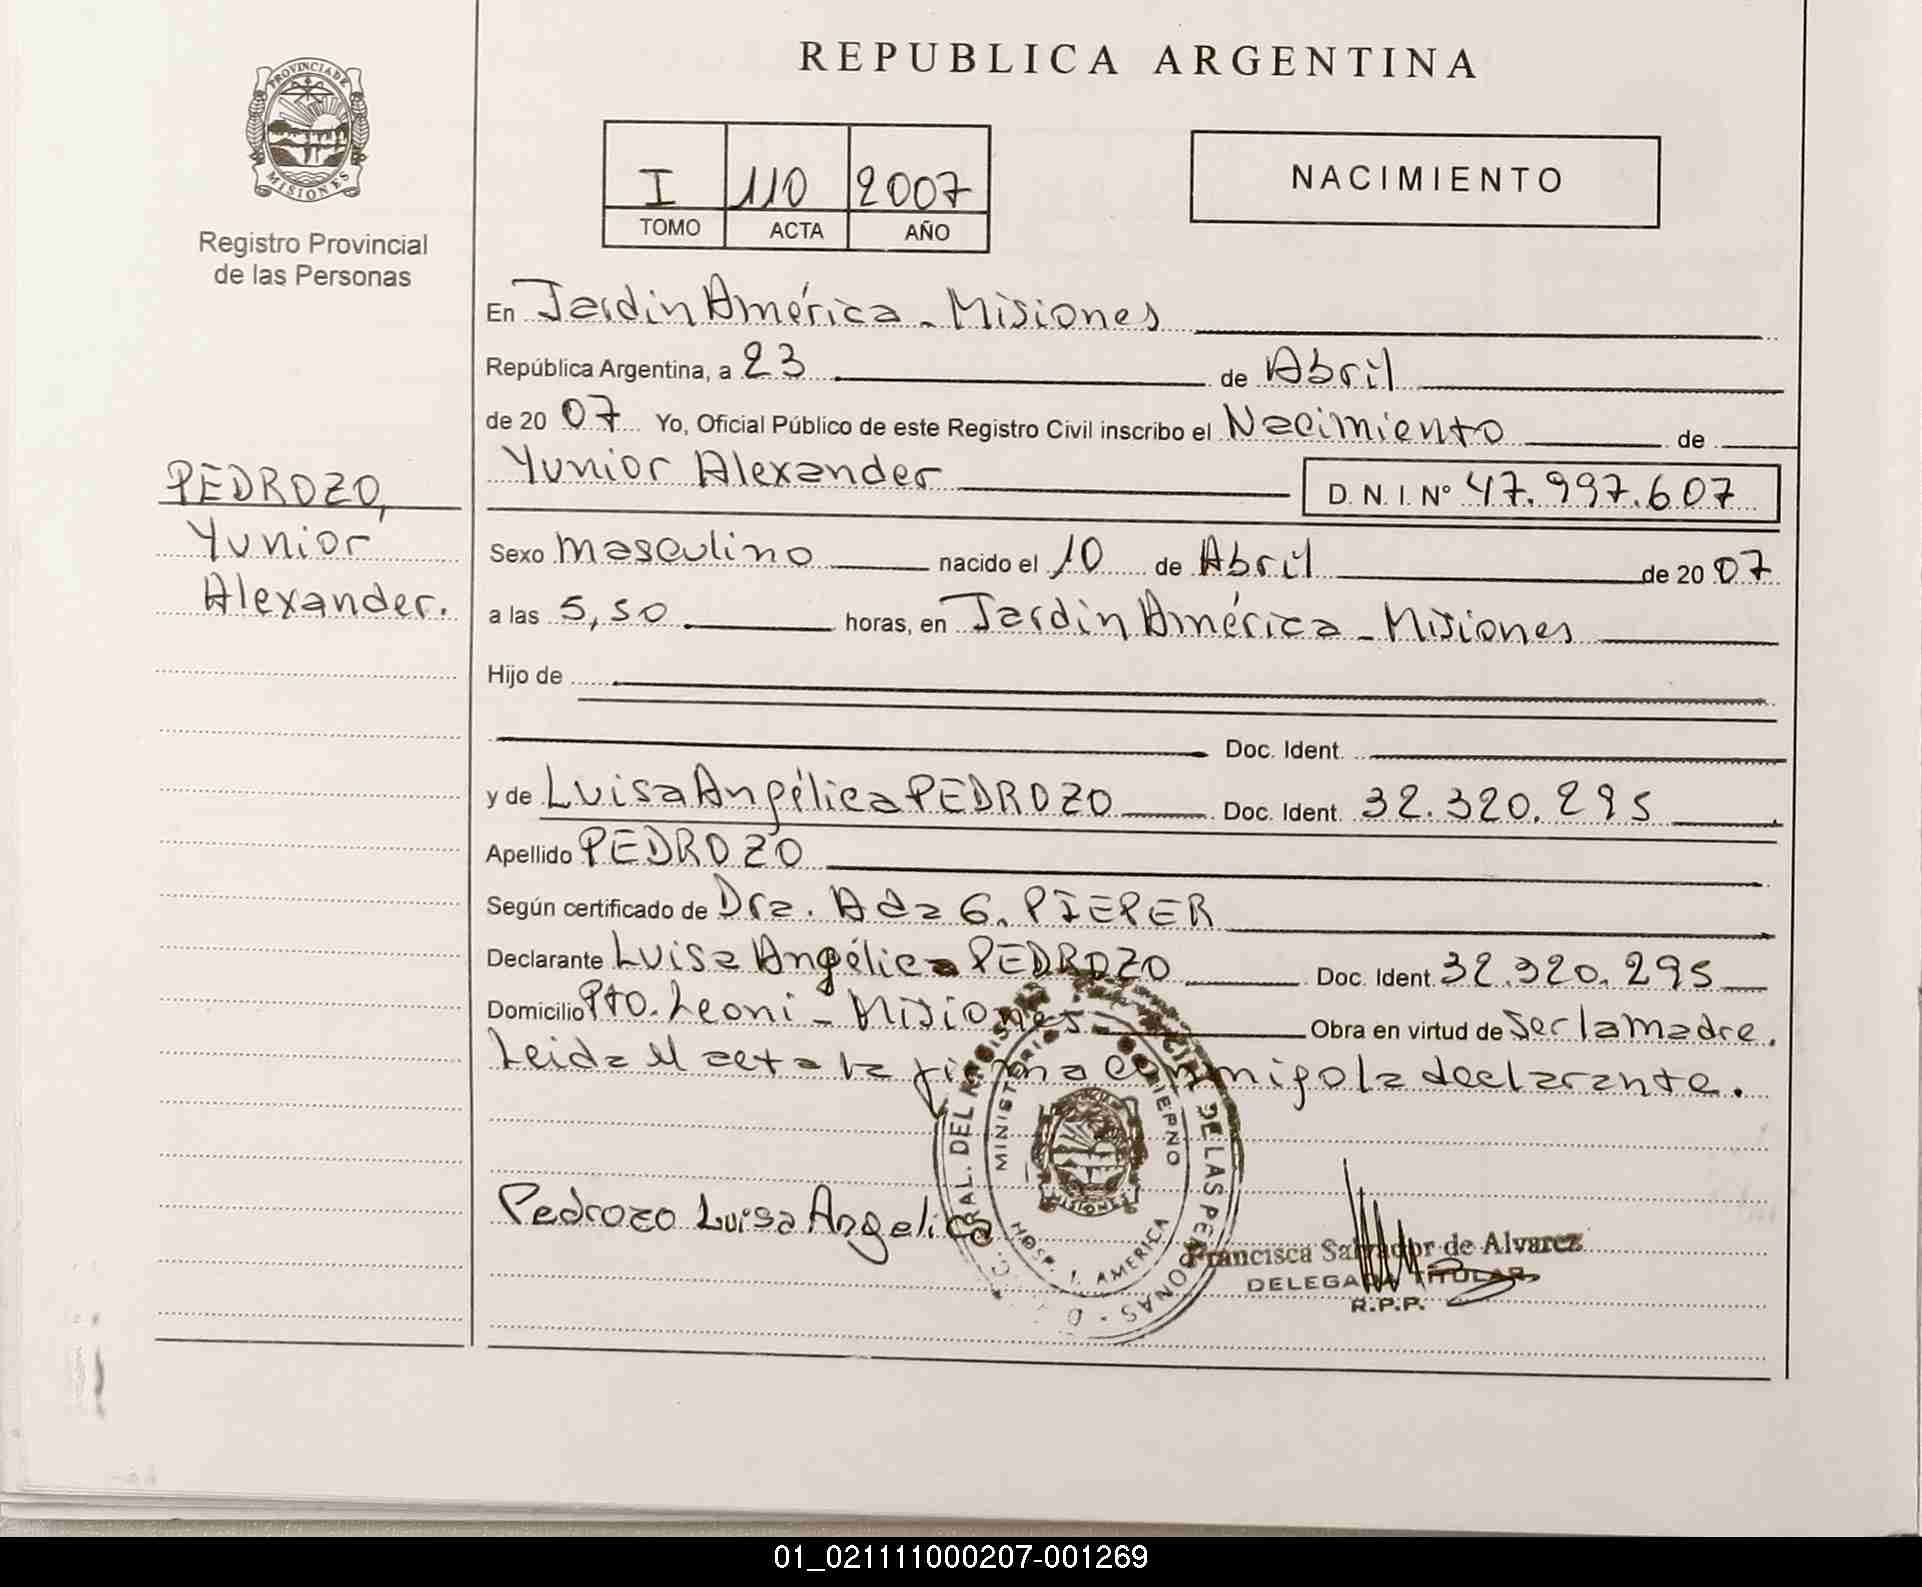 REPUBLICA ARGENTINA
PROVINCIA DE
MISIONES
Registro Provincial
de las Personas
I 110 2007
TOMO ACTA AÑO
NACIMIENTO
En Jardin América - Misiones
República Argentina, a 23 de Abril
de 20 07 Yo, Oficial Público de este Registro Civil inscribo el Nacimiento de
Yunior Alexander D. N. I. Nº 47.997.607
PEDROZO,
Yunior
Alexander.
Sexo masculino nacido el 10 de Abril de 20 07
a las 5,50 horas, en Jardin América - Misiones
Hijo de
Doc. Ident.
y de Luisa Angélica PEDROZO Doc. Ident. 32.320.295
Apellido PEDROZO
Según certificado de Dra. Ada G. PIEPER
Declarante Luisa Angélica PEDROZO Doc. Ident. 32.320.295
Domicilio Pto. Leoni - Misiones Obra en virtud de ser la madre.
Leida el acta la firma conmigo la declarante.
RAL. DEL DE LAS PERSONAS
MINISTERIO GOBIERNO
MISIONES
HOSP. J. AMERICA
Pedrozo Luisa Angelica
Francisca Salvador de Alvarez
DELEGADA TITULAR
R.P.P.
01_021111000207-001269